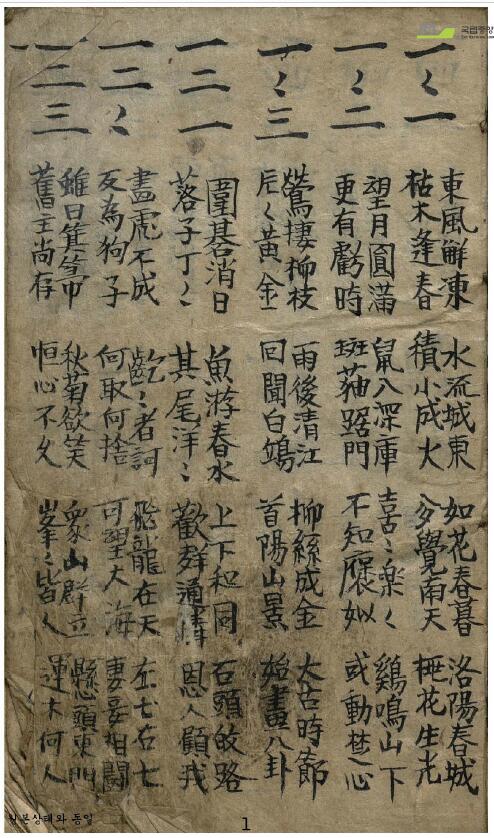 국립중앙
一〻一
東風解凍 水流城東 如花春暮 洛陽春城
枯木逢春 積小成大 覺南天 梅花生光
一〻二
望月圓滿 鼠入深庫 喜〻樂〻 鷄鳴山下
更有虧時 斑猫踞門 不知 或動楚心
一〻三
鶯捿柳枝 雨後清江 柳絲成金 太古時節
片〻黃金 回聞白鴻 首陽山景 始畫八卦
一二一
圍碁消日 魚游春水 上下和同 石頭 路
落子丁〻 其尾洋〻 歡群通情 恩人顧我
一二〻
畵虎不成 者訶 飛龍在天 左七右七
反為狗子 何取何捨 可望大海 妻妾相鬪
一二三
雖曰箕箒 秋菊欲笑 衆山群立 懸頭東門
舊主尚存 恒心不久 峯〻皆人 何人
원본상태와 동일
1